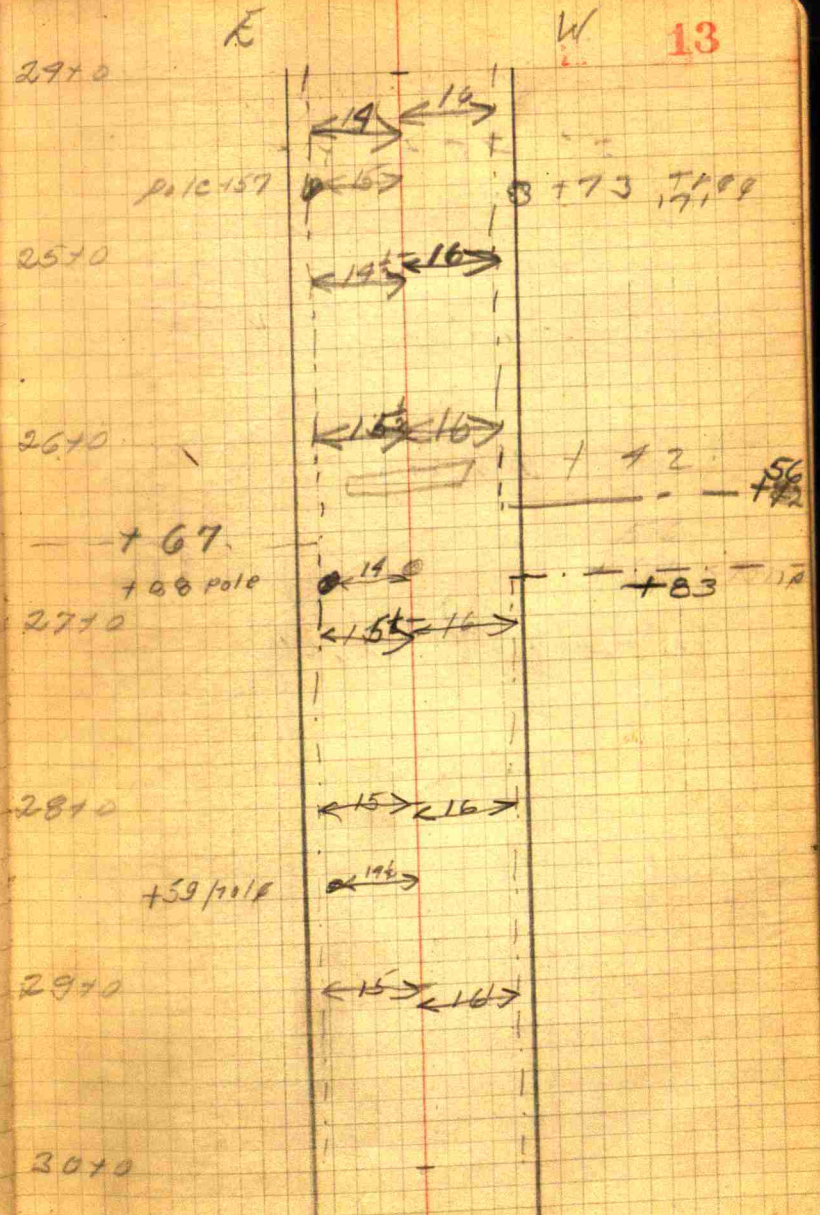 E W 13
24+0
14 16
pole +57 15 +73
25+0
14½ 16
26+0
15½ 16
+42
56
+67
+88 pole 14
+83
27+0
15½ 16
28+0
15 16
+59 pole 14½
29+0
15 16
30+0